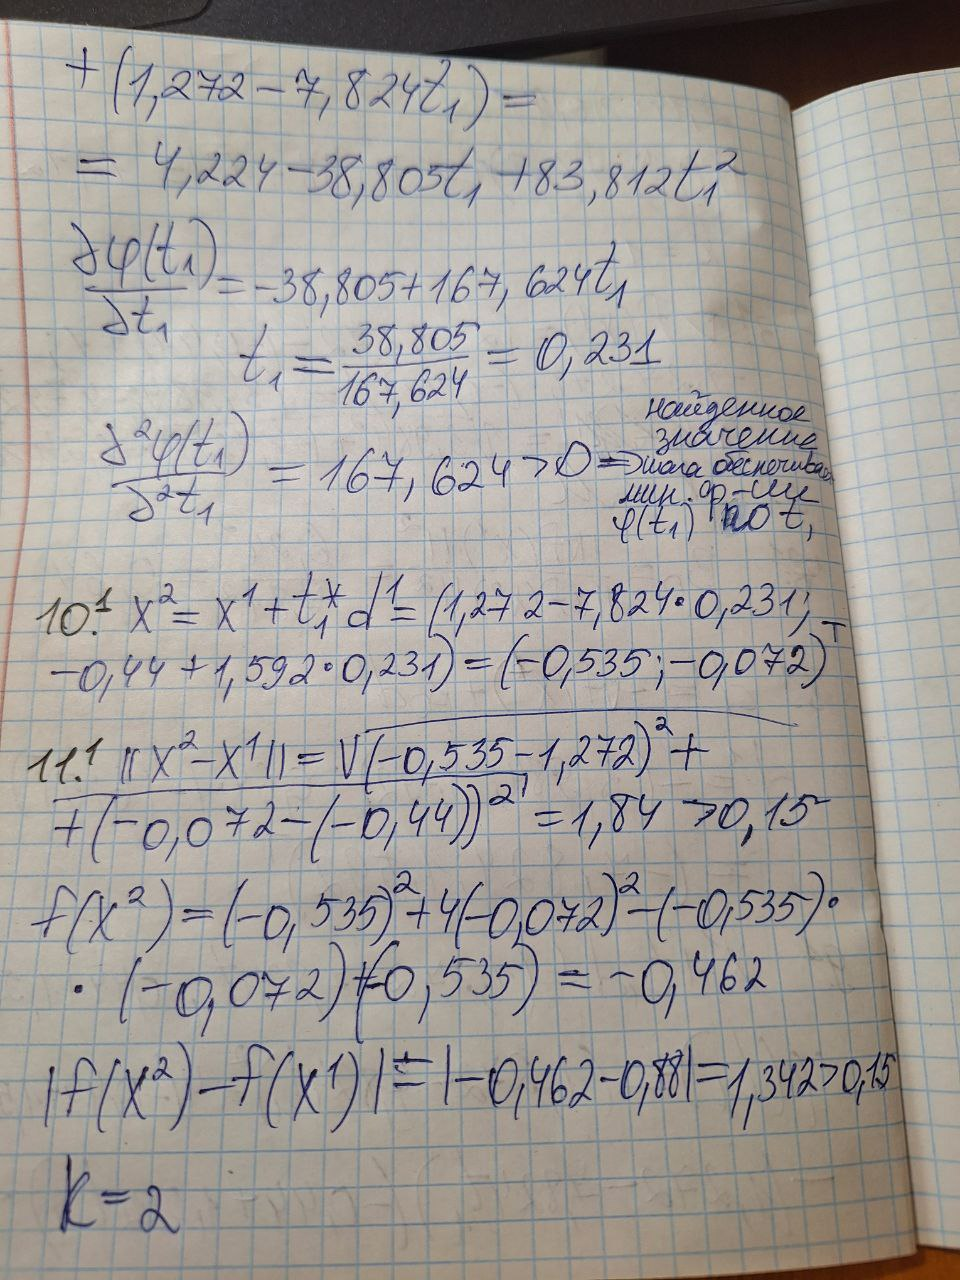 +(1,272-7,824t₁)=
= 4,224-38,805t₁+83,812t₁²
∂φ(t₁)/∂t₁ = -38,805+167,624t₁
t₁ = 38,805/167,624 = 0,231
∂²φ(t₁)/∂²t₁ = 167,624>0 => найденное
значение
шага обеспечивает
мин. ф-ции
φ(t₁) по t₁
10.¹ x²= x¹+t₁* d¹= (1,272-7,824·0,231;
-0,44+1,592·0,231)=(-0,535;-0,072)ᵀ
11.¹ ||x²-x¹|| = √(-0,535-1,272)²+
+(-0,072-(-0,44))² = 1,84 >0,15
f(x²)=(-0,535)²+4(-0,072)²-(-0,535)·
·(-0,072)+(-0,535) = -0,462
|f(x²)-f(x¹)|=|-0,462-0,88|=1,342>0,15
k=2